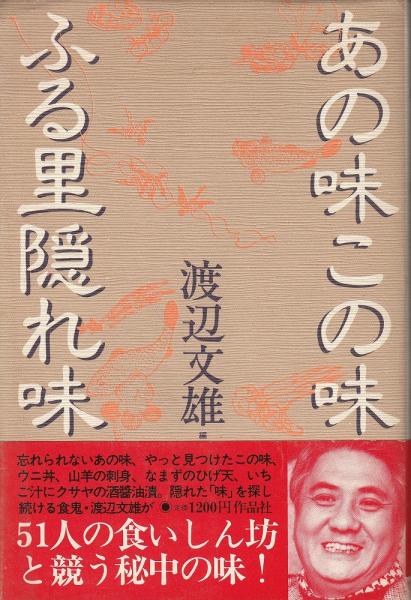 あの味この味
ふる里隠れ味
渡辺文雄
編
忘れられないあの味、やっと見つけたこの味、
ウニ丼、山羊の刺身、なまずのひげ天、いち
ご汁にクサヤの酒醬油漬。隠れた「味」を探し
続ける食鬼・渡辺文雄が ●定価1200円 作品社
51人の食いしん坊
と競う秘中の味！